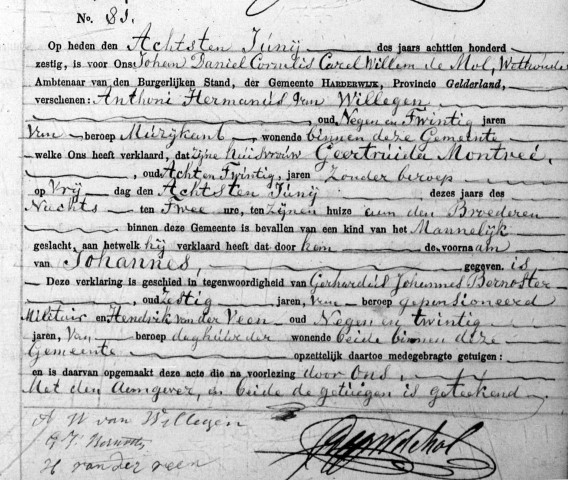 No. 81.
Op heden den Achtsten Junij des jaars achttien honderd
zestig, is voor Ons: Johan Daniel Cornelis Carel Willem de Mol, Wethouder
Ambtenaar van den Burgerlijken Stand, der Gemeente HARDERWIJK, Provincie Gelderland,
verschenen: Anthoni Hermanus van Willegen
oud Negen en Twintig jaren
Van beroep Muzijkant wonende binnen deze Gemeente
welke Ons heeft verklaard, dat zijne Huisvrouw Geertruida Montreé,
oud Acht en Twintig, jaren Zonder beroep
op Vrij dag den Achtsten Junij dezes jaars des
Nachts ten Twee ure, ten Zijnen huize aan den Broederen
binnen deze Gemeente is bevallen van een kind van het Mannelijk
geslacht, aan hetwelk hij verklaard heeft dat door hem de voornaam
van Johannes, gegeven is
Deze verklaring is geschied in tegenwoordigheid van Gerhardus Johannes Bernoster
oud Zestig jaren, van beroep gepensioneerd
Militair en Hendrik van der Veen oud Negen en twintig
jaren, Van beroep daghuurder wonende beide binnen deze
Gemeente opzettelijk daartoe medegebragte getuigen:
en is daarvan opgemaakt deze acte die na voorlezing door Ons,
Met den Aangever, en beide de getuigen is geteekend
A H van Willegen
H van der veen